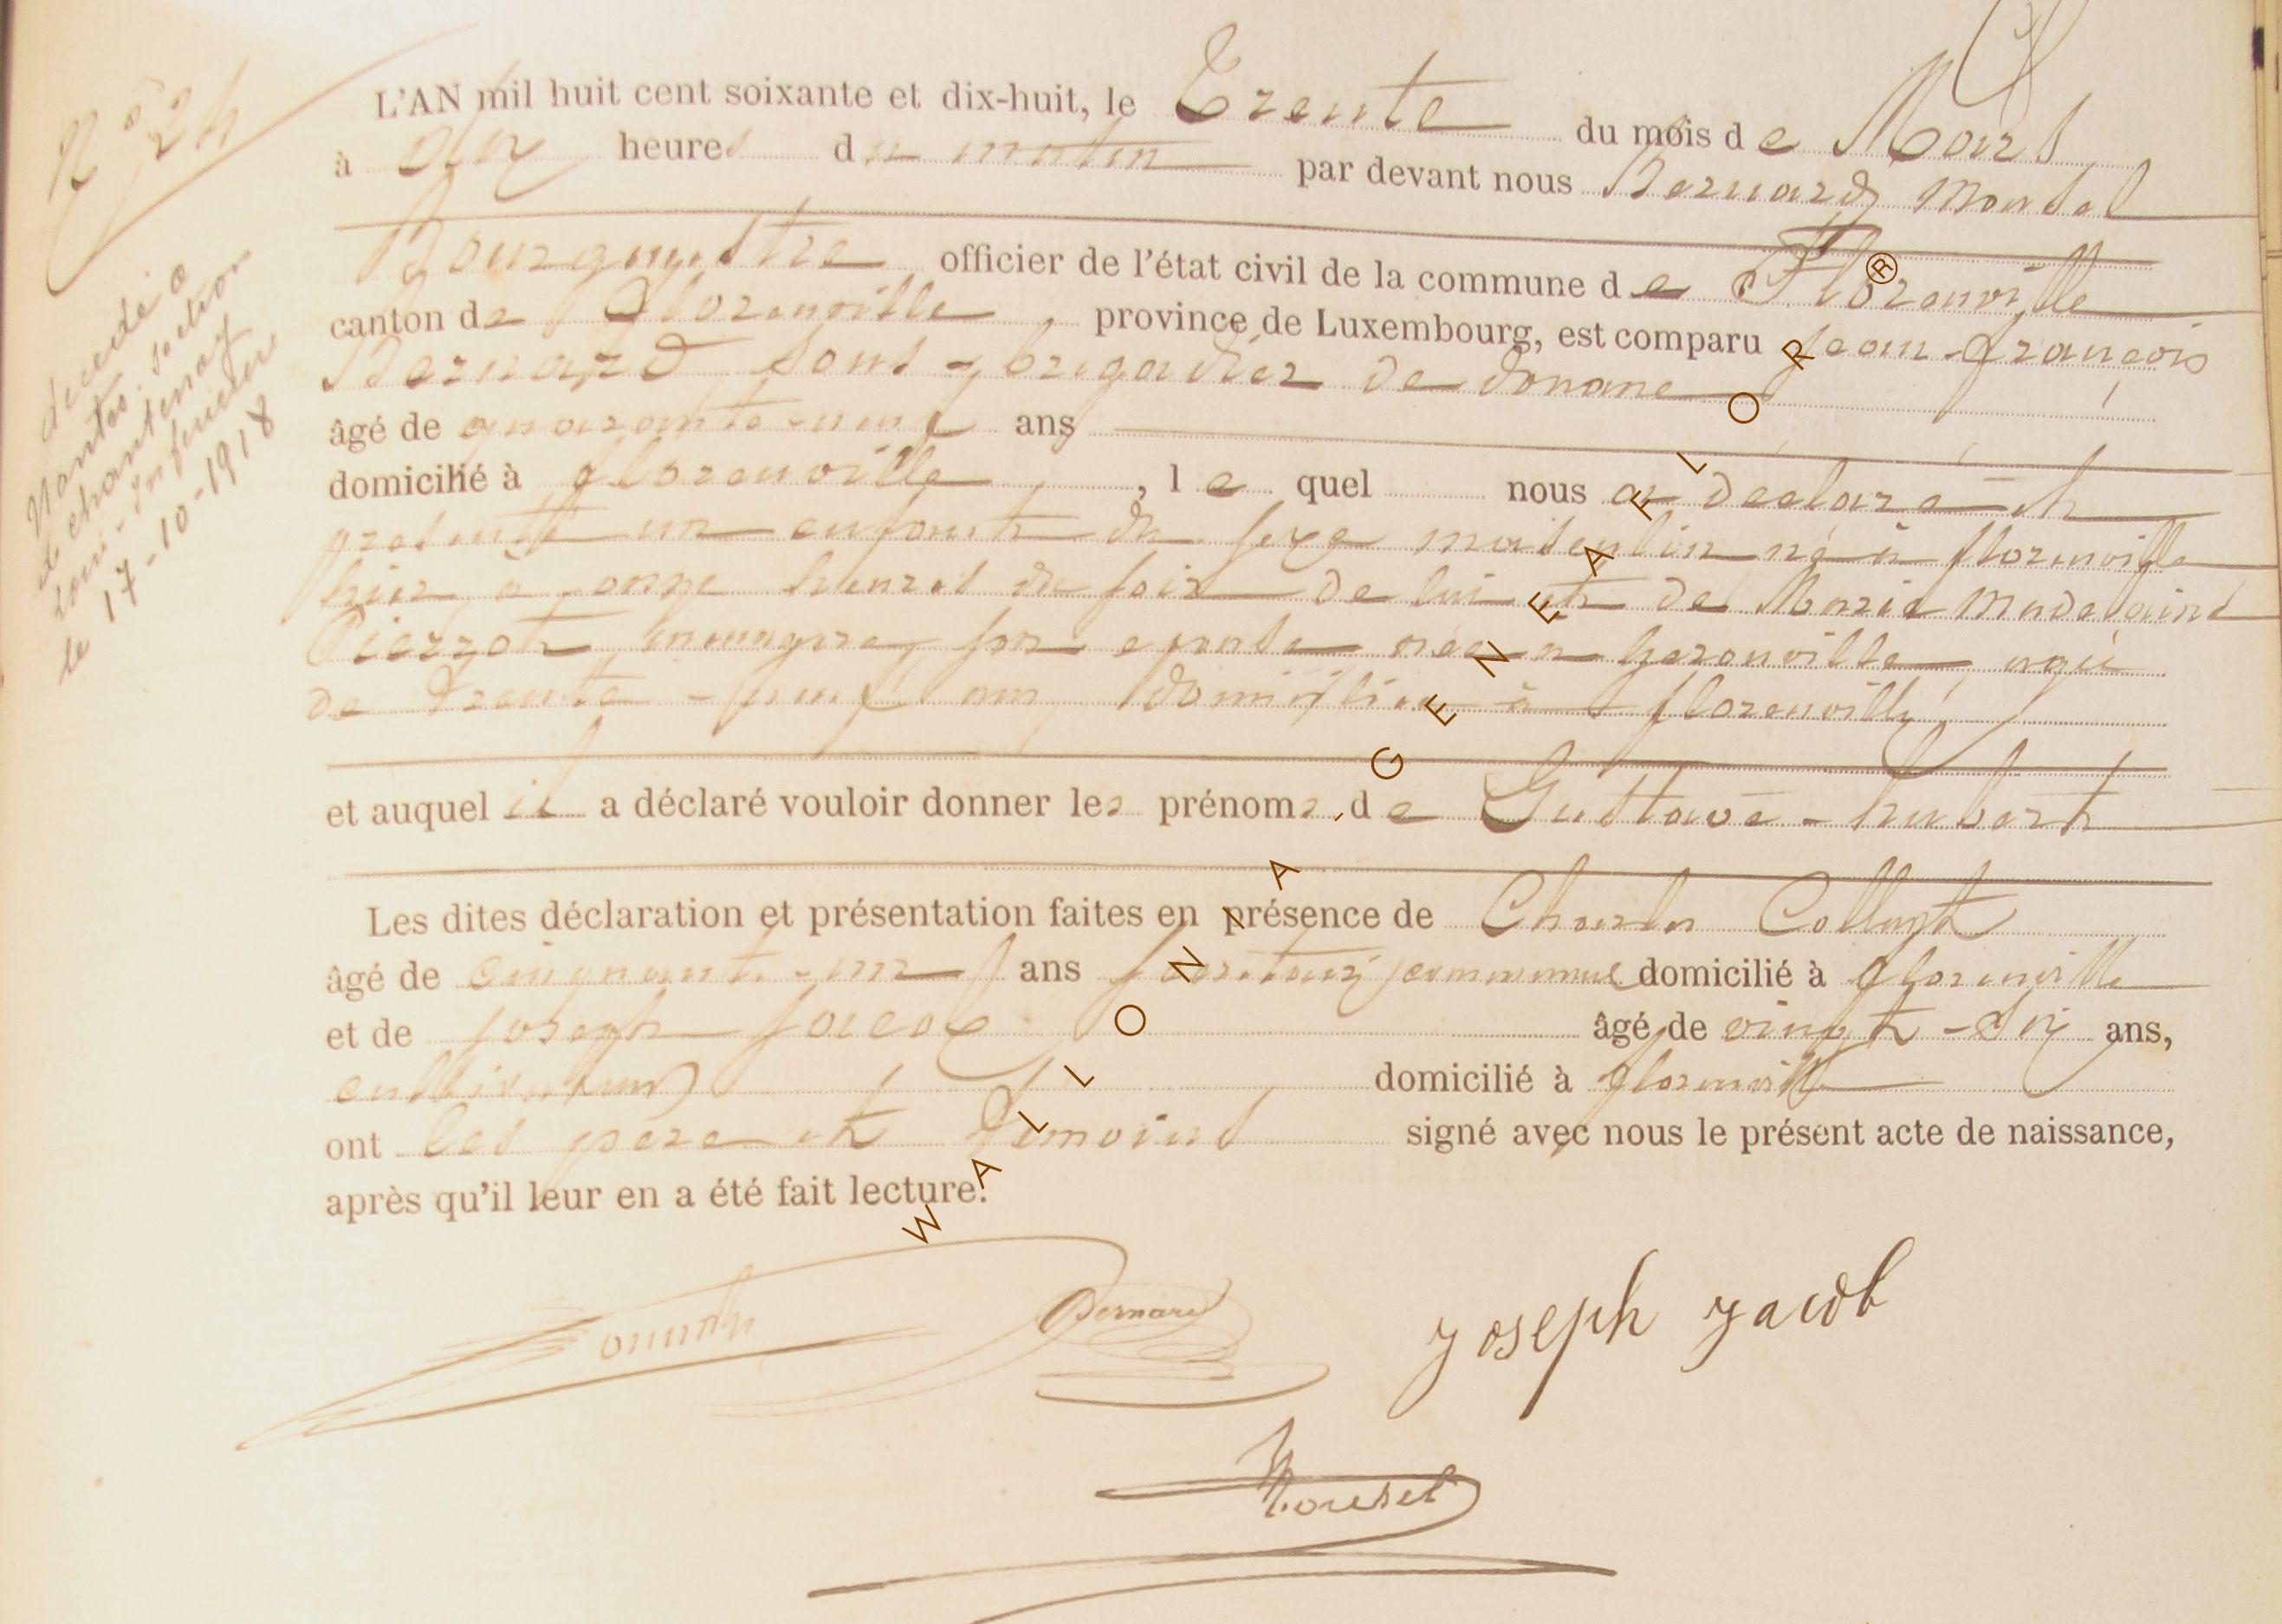 N° 24
décédé à
Nantes. section
de chantenay
Loire-Inférieure
le 17-10-1918
L'AN mil huit cent soixante et dix-huit, le Trente du mois de Mars
à dix heures du matin par devant nous Bernard Mousel
Bourgmestre officier de l'état civil de la commune de Florenville
canton de Florenville, province de Luxembourg, est comparu Jean-François
Bernard, sous-brigadier de douane
âgé de quarante-un ans
domicilié à florenville, lequel nous a déclaré et
présenté un enfant du sexe masculin né à florenville
hier à onze heures du soir de lui et de Marie Madelaine
Pierrot ménagère, son épouse née à agée
de Trente-neuf ans, domiciliée à florenville,
et auquel il a déclaré vouloir donner les prénoms de Gustave-hubert
Les dites déclaration et présentation faites en présence de Charles
âgé de cinquante-un ans communal domicilié à florenville
et de Joseph Jacob âgé de vingt-six ans,
cultivateur domicilié à florenville
ont les père et témoins signé avec nous le présent acte de naissance,
après qu'il leur en a été fait lecture.
Bernard
Joseph Jacob
Mousel
WALLONIA GENEAFLOR®